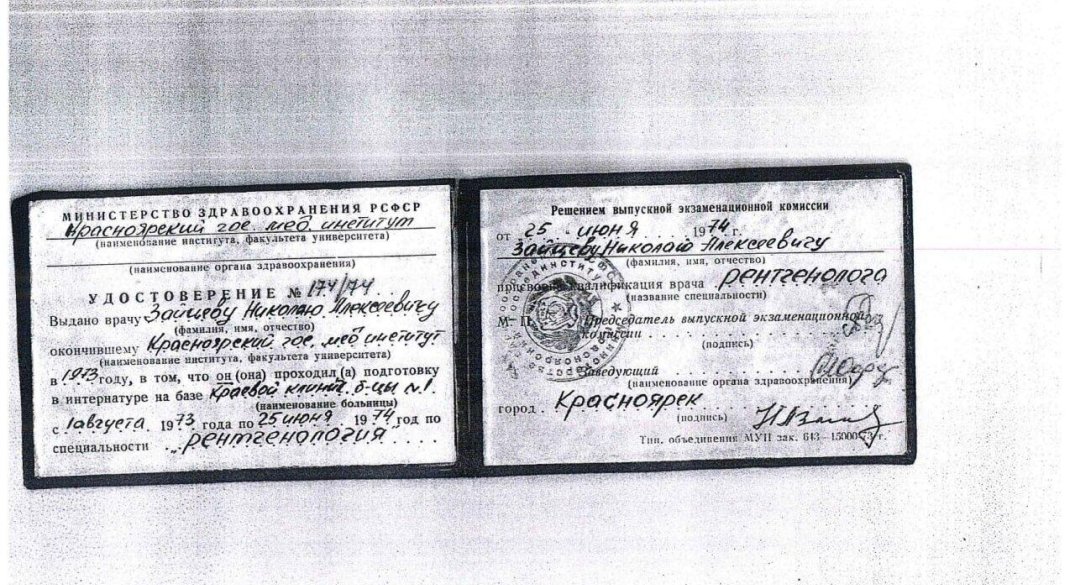 МИНИСТЕРСТВО ЗДРАВООХРАНЕНИЯ РСФСР
Красноярский гос. мед. институт
(наименование института, факультета университета)
(наименование органа здравоохранения)
УДОСТОВЕРЕНИЕ № 174/74
Выдано врачу Зайцеву Николаю Алексеевичу
(фамилия, имя, отчество)
окончившему Красноярский гос. мед институт
(наименование института, факультета университета)
в 1973 году, в том, что он (она) проходил (а) подготовку
в интернатуре на базе Краевой клинич. б-цы №1.
(наименование больницы)
с 1 августа. 1973 года по 25 июня 1974 год по
специальности рентгенология
Решением выпускной экзаменационной комиссии
от 25 июня 1974 г.
Зайцеву Николаю Алексеевичу
(фамилия, имя, отчество)
присвоена квалификация врача рентгенолога
(название специальности)
М. П. Председатель выпускной экзаменационной
комиссии
(подпись)
Заведующий
(наименование органа здравоохранения)
город. Красноярск
(подпись)
Тип. объединения МУП зак. 643—15000 73 г.